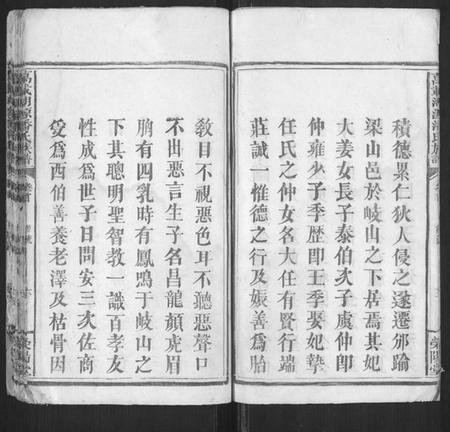 積德累仁狄人侵之遂遷邠踰
梁山邑於岐山之下居焉其妃
大姜女長子泰伯次子虞仲卽
仲雍少子季歷卽王季娶妃摯
任氏之仲女名大任有賢行端
莊誠一惟德之行及娠善爲胎
敎目不視惡色耳不聽惡聲口
不出惡言生子名昌龍顏虎眉
胸有四乳時有鳳鳴于岐山之
下其聰明聖智教一識百孝友
性成爲世子日問安三次佐商
受爲西伯善養老澤及枯骨因